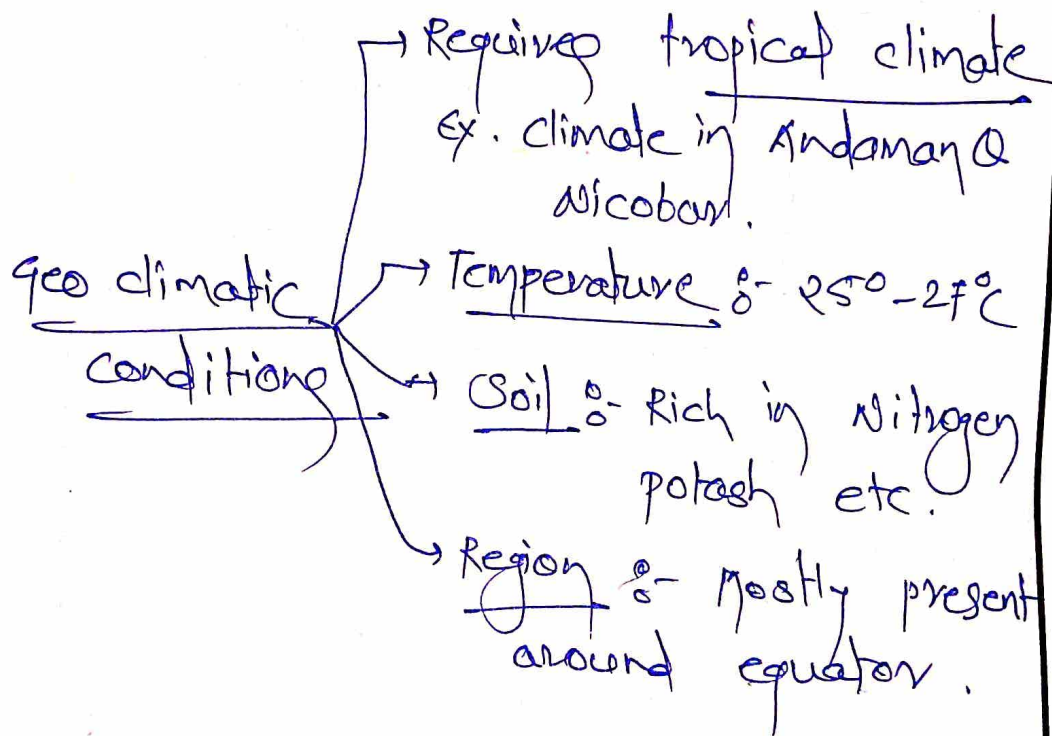 Geo climatic
conditions
→ Requires tropical climate
Ex. climate in Andaman &
Nicobar.
→ Temperature :- 25° - 27°C
→ Soil :- Rich in Nitrogen
potash etc.
→ Region :- Mostly present
around equator.